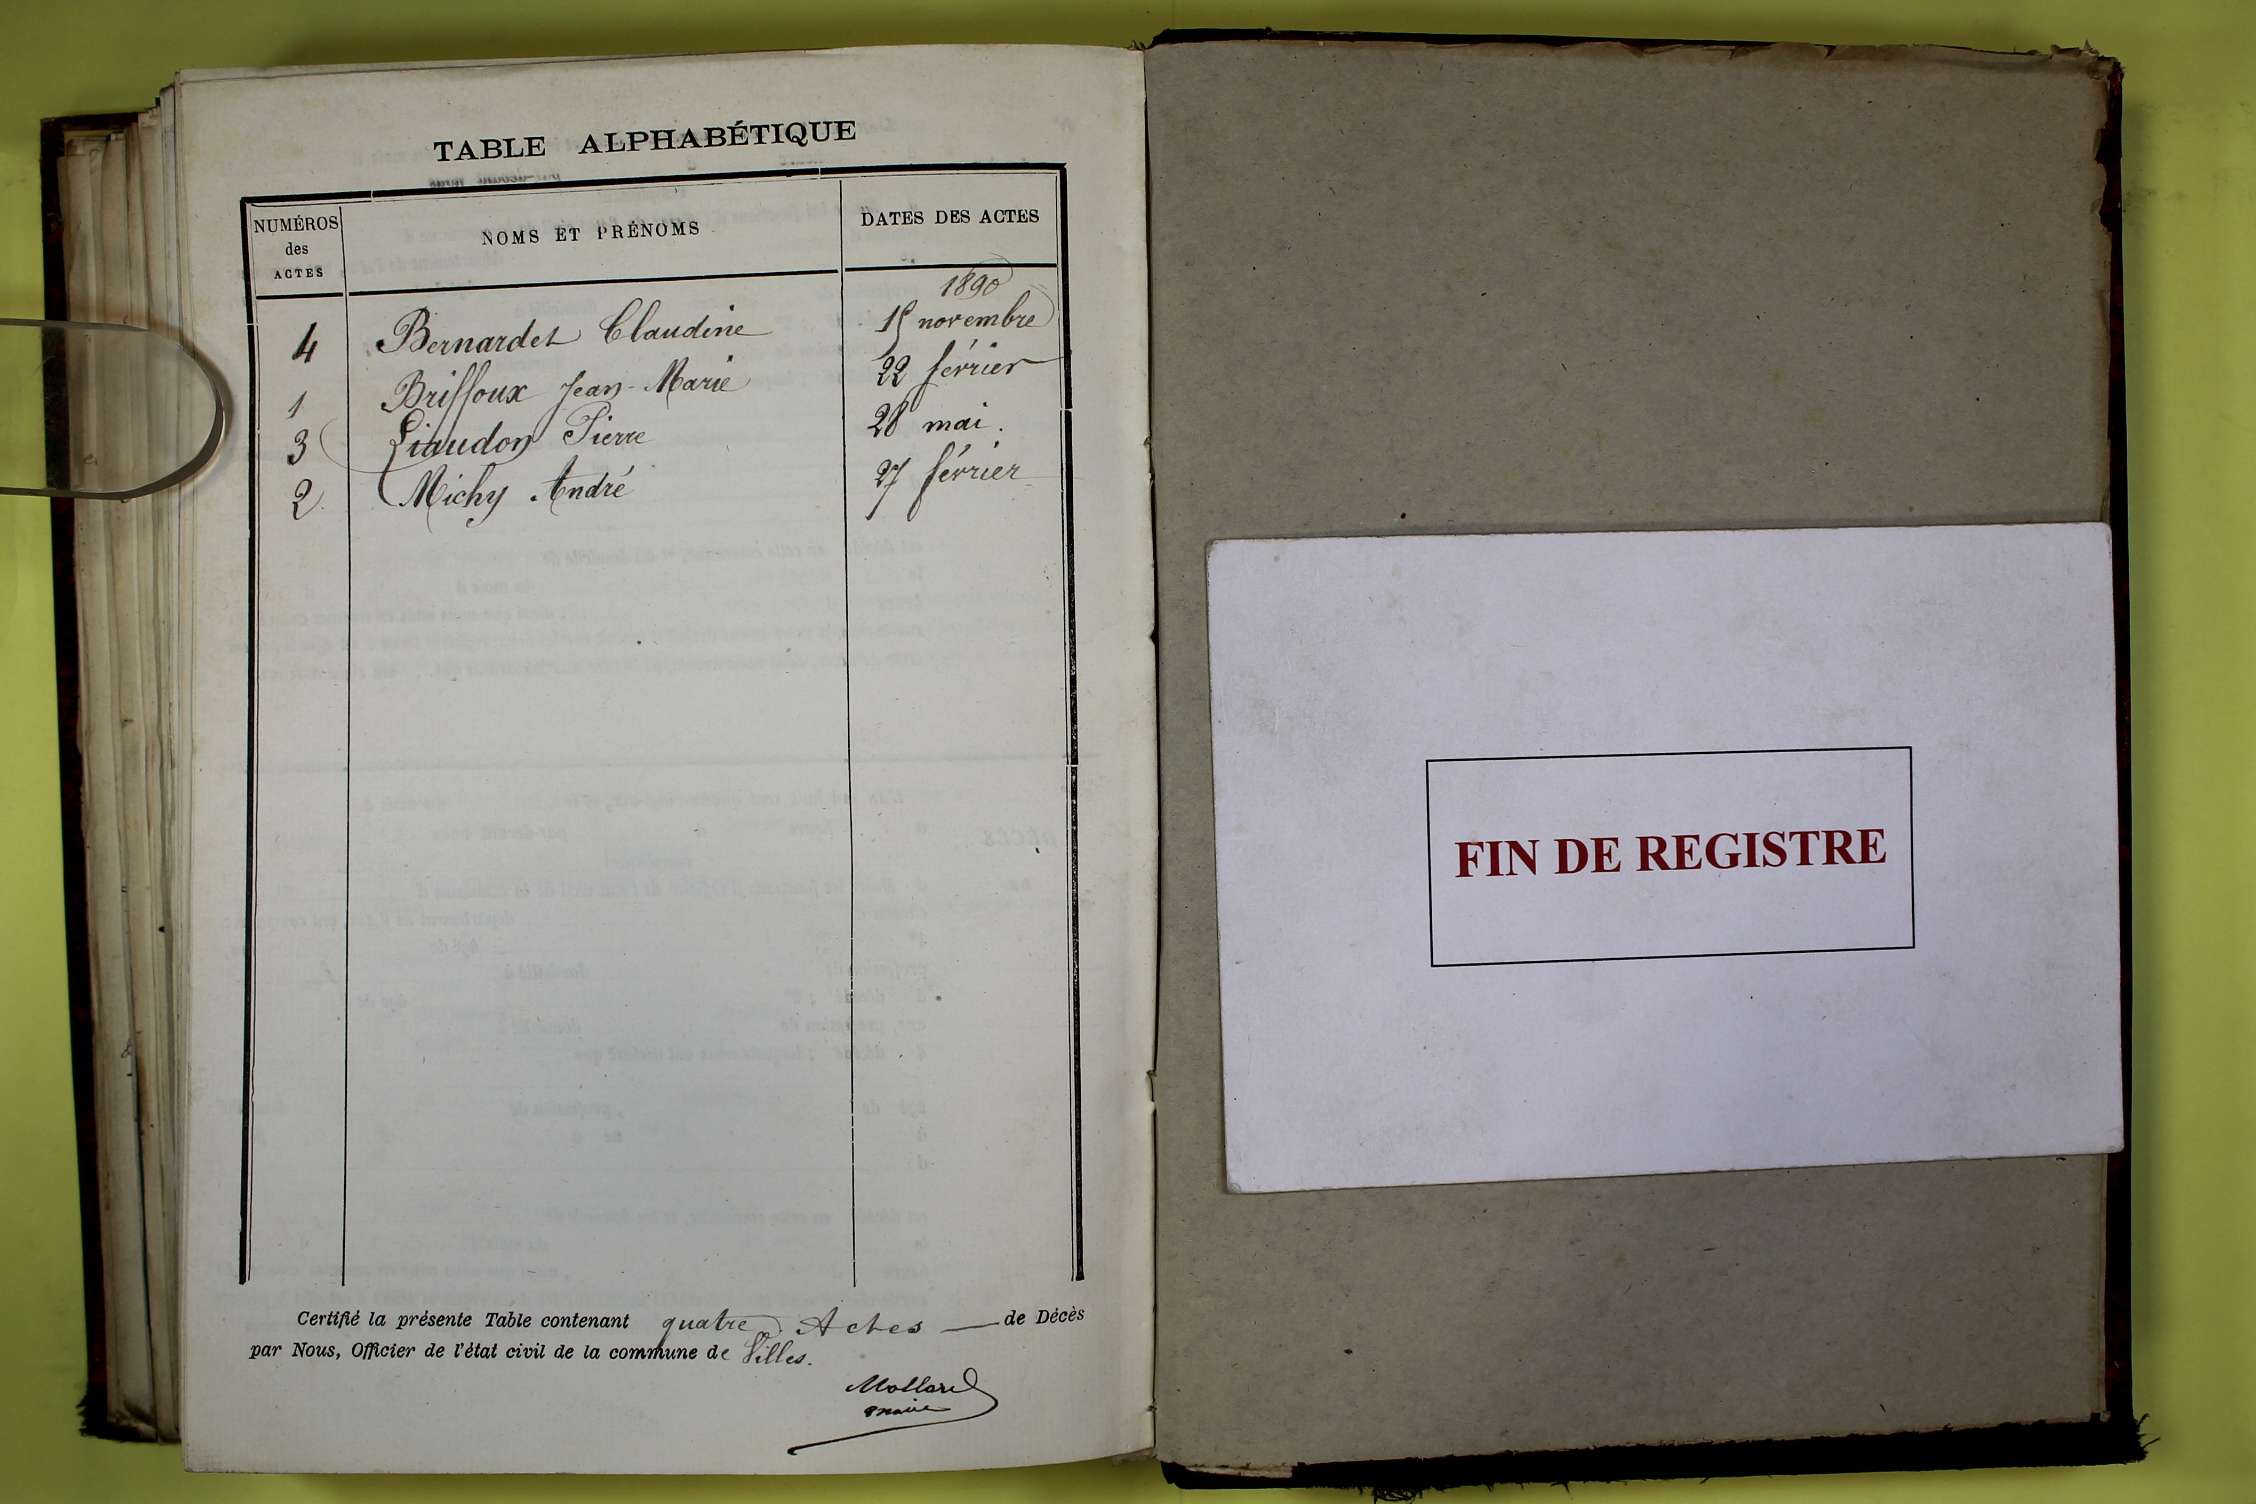 TABLE ALPHABÉTIQUE
NUMÉROS des ACTES NOMS ET PRÉNOMS DATES DES ACTES
1890
4 Bernardet Claudine 15 novembre
1 Briffoux Jean-Marie 22 février
3 Liaudon Pierre 28 mai.
2 Michy André 27 février
Certifié la présente Table contenant quatre Actes — de Décès
par Nous, Officier de l'état civil de la commune de Villes.
Mollard
maire
FIN DE REGISTRE